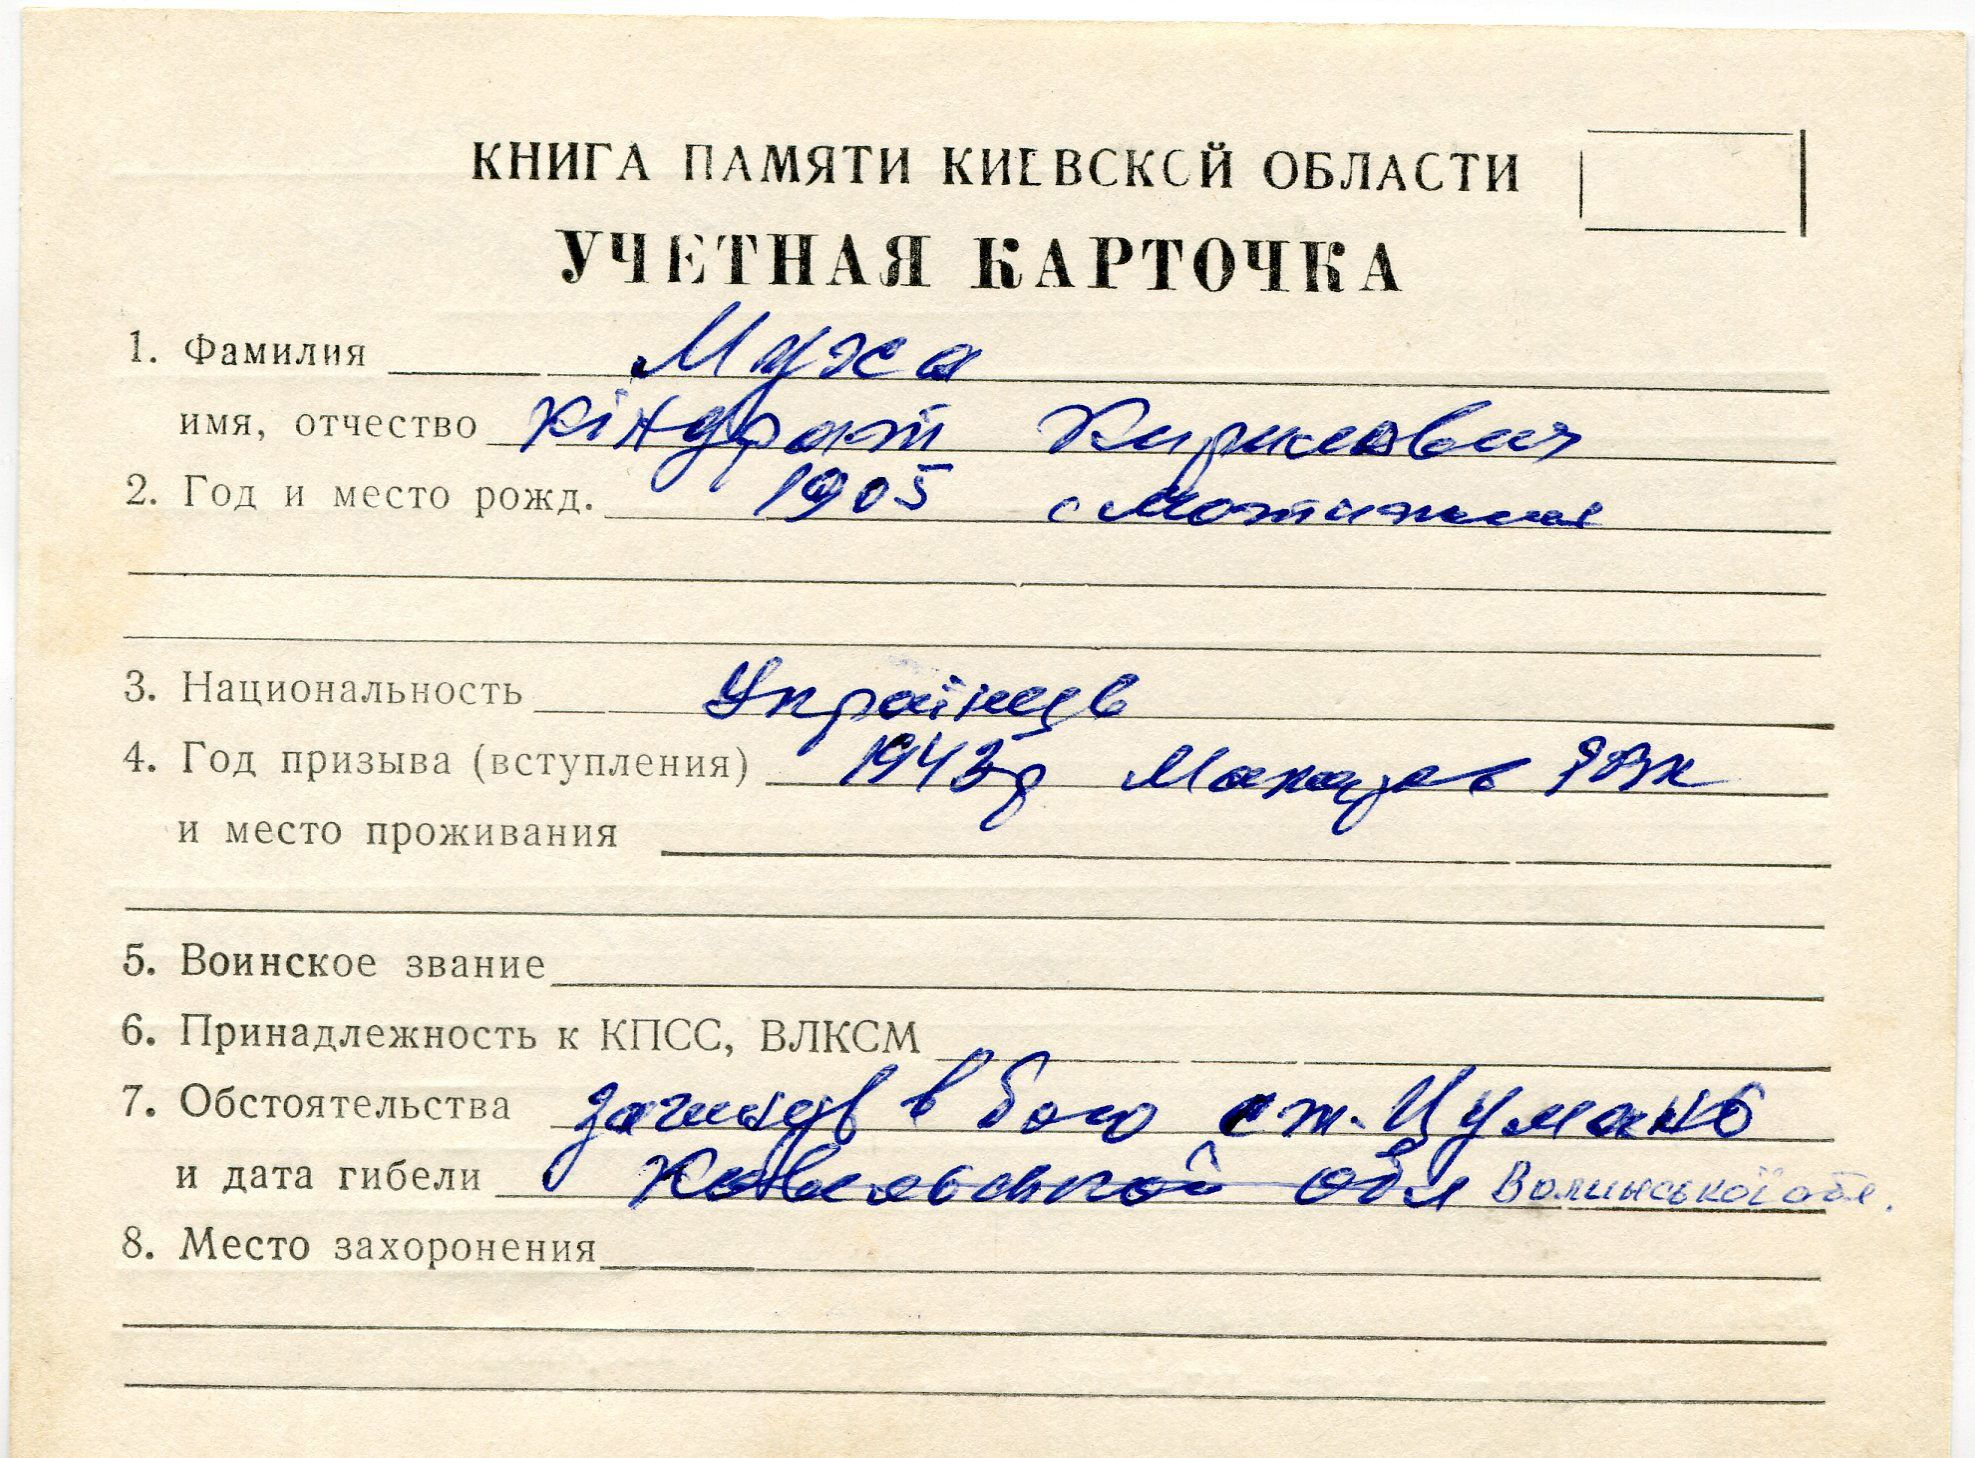 КНИГА ПАМЯТИ КИЕВСКОЙ ОБЛАСТИ
УЧЕТНАЯ КАРТОЧКА
1. Фамилия Муха
имя, отчество Кіндрат Кирилович
2. Год и место рожд. 1905 с Мотижин
3. Национальность Українець
4. Год призыва (вступления) 1943р Макарів РВК
и место проживания
5. Воинское звание
6. Принадлежность к КПСС, ВЛКСМ
7. Обстоятельства загинув в бою ст. Цумань
и дата гибели Ковельской обл Волинської обл.
8. Место захоронения